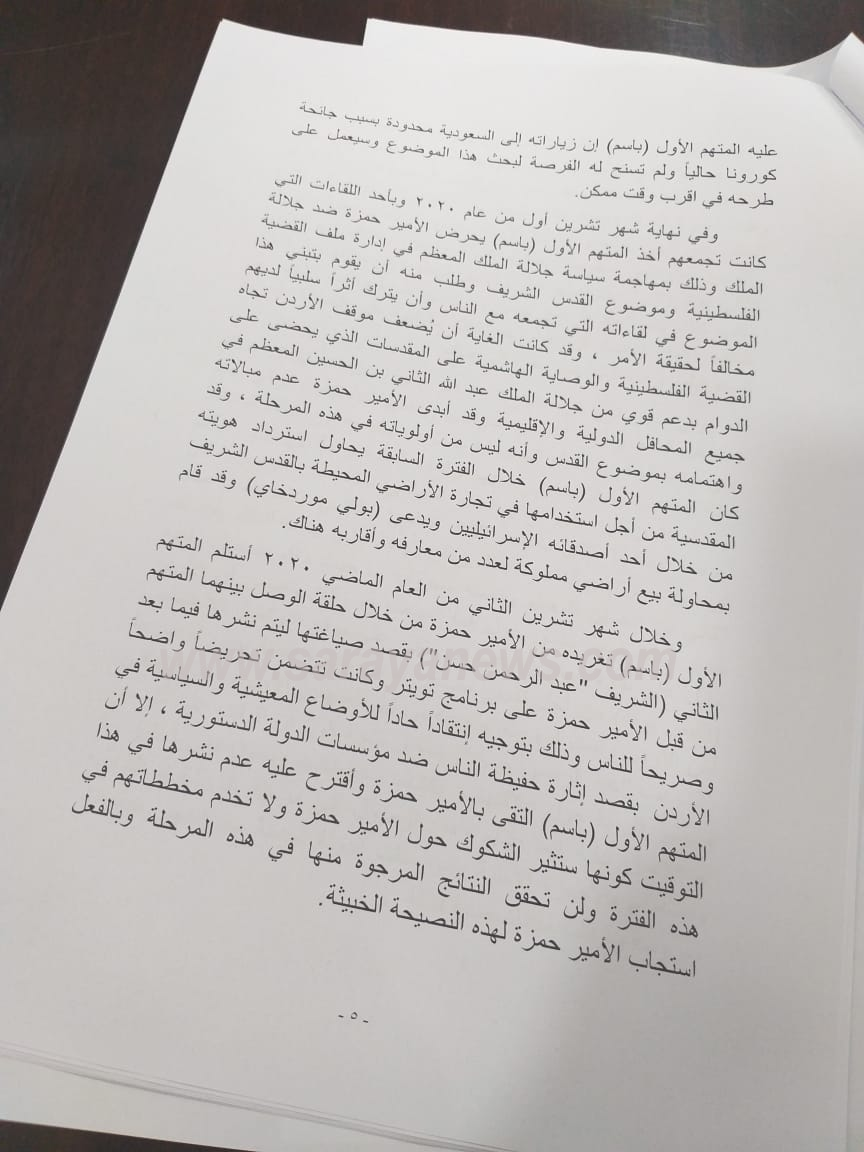 عليه المتهم الأول (باسم) إن زياراته إلى السعودية محدودة بسبب جائحة
كورونا حالياً ولم تسنح له الفرصة لبحث هذا الموضوع وسيعمل على
طرحه في اقرب وقت ممكن.
وفي نهاية شهر تشرين أول من عام ٢٠٢٠ وبأحد اللقاءات التي
كانت تجمعهم أخذ المتهم الأول (باسم) يحرض الأمير حمزة ضد جلالة
الملك وذلك بمهاجمة سياسة جلالة الملك المعظم في إدارة ملف القضية
الفلسطينية وموضوع القدس الشريف وطلب منه أن يقوم بتبني هذا
الموضوع في لقاءاته التي تجمعه مع الناس وأن يترك أثراً سلبياً لديهم
مخالفاً لحقيقة الأمر ، وقد كانت الغاية أن يُضعف موقف الأردن تجاه
القضية الفلسطينية والوصاية الهاشمية على المقدسات الذي يحضى على
الدوام بدعم قوي من جلالة الملك عبد الله الثاني بن الحسين المعظم في
جميع المحافل الدولية والإقليمية وقد أبدى الأمير حمزة عدم مبالاته
واهتمامه بموضوع القدس وأنه ليس من أولوياته في هذه المرحلة ، وقد
كان المتهم الأول (باسم) خلال الفترة السابقة يحاول استرداد هويته
المقدسية من أجل استخدامها في تجارة الأراضي المحيطة بالقدس الشريف
من خلال أحد أصدقائه الإسرائيليين ويدعى (بولي موردخاي) وقد قام
بمحاولة بيع أراضي مملوكة لعدد من معارفه وأقاربه هناك.
وخلال شهر تشرين الثاني من العام الماضي ٢٠٢٠ أستلم المتهم
الأول (باسم) تغريده من الأمير حمزة من خلال حلقة الوصل بينهما المتهم
الثاني (الشريف "عبد الرحمن حسن") بقصد صياغتها ليتم نشرها فيما بعد
من قبل الأمير حمزة على برنامج تويتر وكانت تتضمن تحريضاً واضحاً
وصريحاً للناس وذلك بتوجيه إنتقاداً حاداً للأوضاع المعيشية والسياسية في
الأردن بقصد إثارة حفيظة الناس ضد مؤسسات الدولة الدستورية ، إلا أن
المتهم الأول (باسم) التقى بالأمير حمزة وأقترح عليه عدم نشرها في هذا
التوقيت كونها ستثير الشكوك حول الأمير حمزة ولا تخدم مخططاتهم في
هذه الفترة ولن تحقق النتائج المرجوة منها في هذه المرحلة وبالفعل
استجاب الأمير حمزة لهذه النصيحة الخبيثة.
- ٥ -
www.sarayanews.com